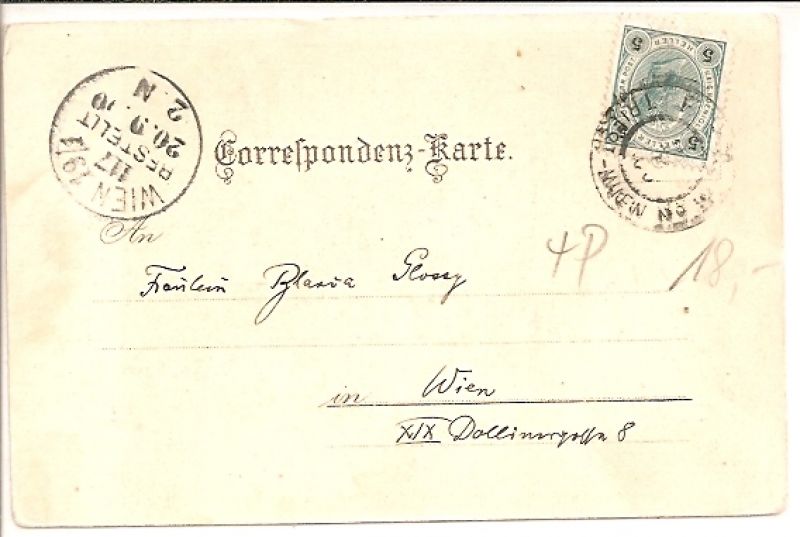 WIEN 19/1
117
BESTELLT
20.9.00
2.N
5 5
HELLER
5
Correspondenz-Karte.
An
Fräulein Glossy
4P
18,-
in Wien
XIX Dollinergasse 8